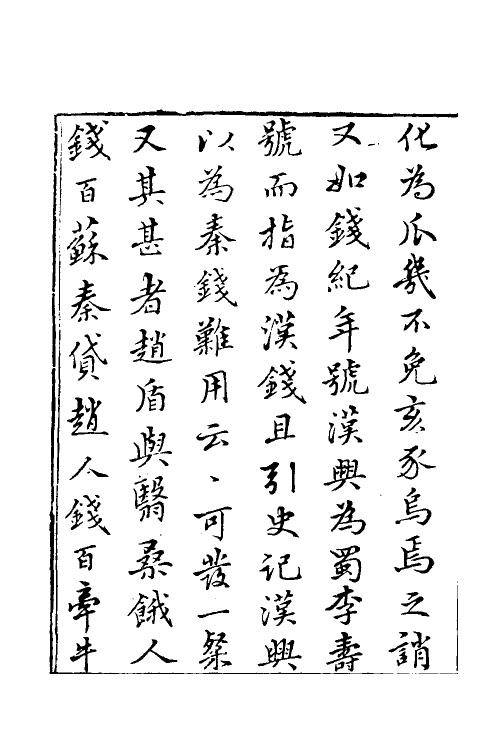 化為爪幾不免亥豕烏焉之誚
又如錢紀年號漢興為蜀李壽
號而指為漢錢且引史記漢興
以為秦錢難用云、可發一粲
又其甚者趙盾與翳桑餓人
錢百蘇秦貸趙人錢百牽牛